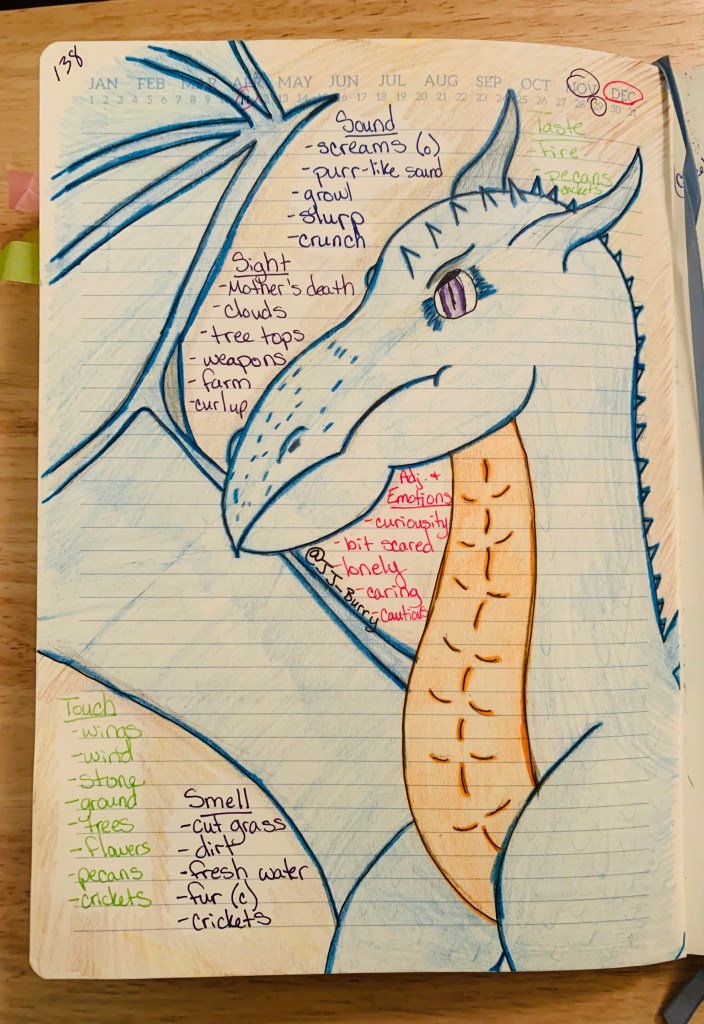 138
JAN FEB MAR APR MAY JUN JUL AUG SEP OCT NOV DEC
Sound
-screams (o)
-purr-like sound
-growl
-slurp
-crunch
Taste
-fire
pecans
crickets
Sight
-Mother's death
-clouds
-tree tops
-weapons
-farm
-curl up
Adj. +
Emotions
-curiousity
-bit scared
-lonely
-caring
-cautious
@JJ_Burry
Touch
-wings
-wind
-stone
-ground
-trees
-flowers
-pecans
-crickets
Smell
-cut grass
-dirt
-fresh water
-fur (c)
-crickets